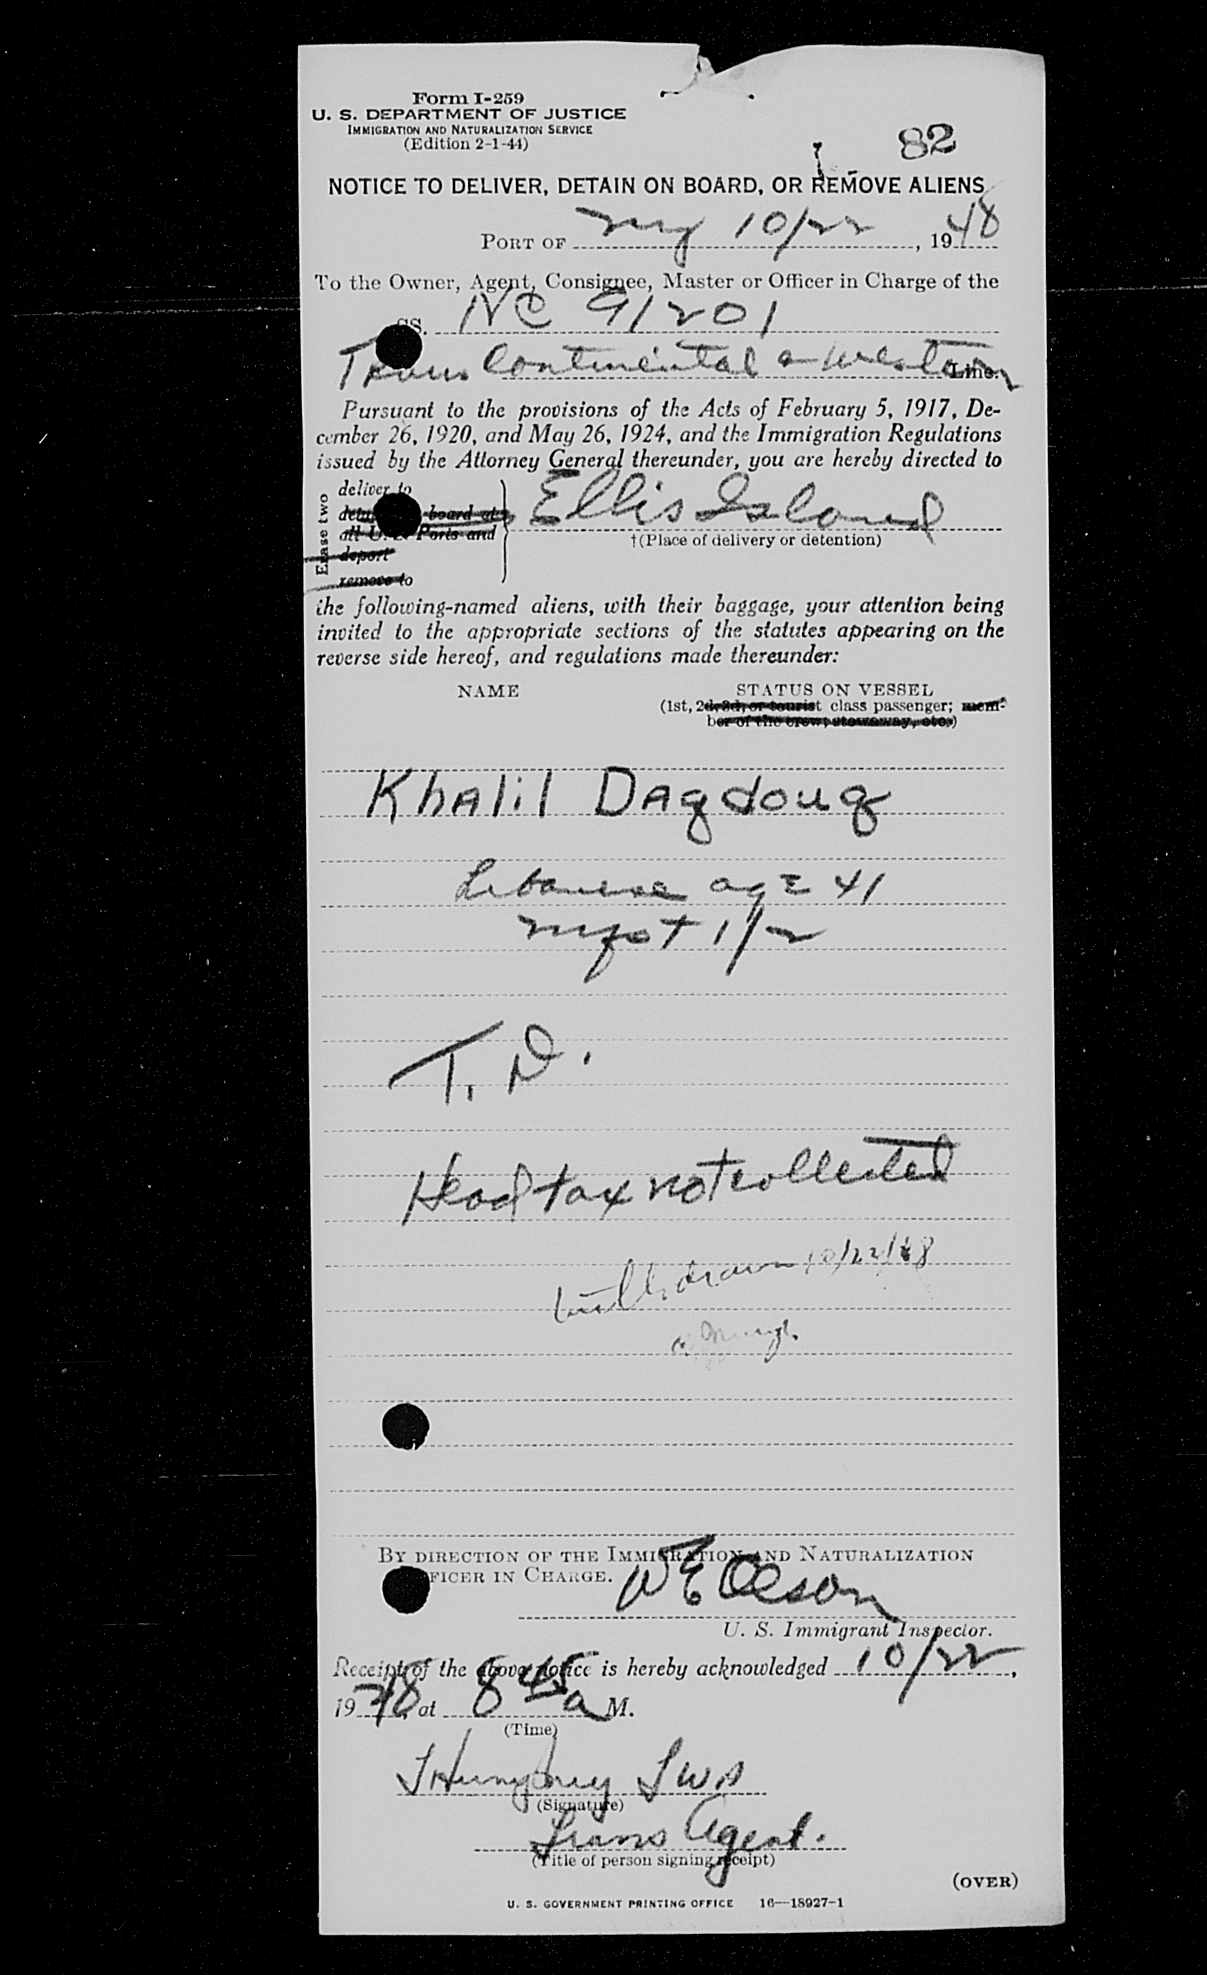 Form I-259
U. S. DEPARTMENT OF JUSTICE
IMMIGRATION AND NATURALIZATION SERVICE
(Edition 2-1-44)
82
NOTICE TO DELIVER, DETAIN ON BOARD, OR REMOVE ALIENS
PORT OF NY 10/22, 1948
To the Owner, Agent, Consignee, Master or Officer in Charge of the
SS. NC 91201
Trans Continental & Western Line.
Pursuant to the provisions of the Acts of February 5, 1917, De-
cember 26, 1920, and May 26, 1924, and the Immigration Regulations
issued by the Attorney General thereunder, you are hereby directed to
Erase two
deliver to
board at
all U. S. Ports and
deport
remove to
Ellis Island
†(Place of delivery or detention)
the following-named aliens, with their baggage, your attention being
invited to the appropriate sections of the statutes appearing on the
reverse side hereof, and regulations made thereunder:
NAME
STATUS ON VESSEL
(1st, 2d, 3d, or tourist class passenger; mem-
ber of the crew, stowaway, etc.)
Khalil Dagdoug
Lebanese age 41
1/2
T. D.
Head tax not collected
withdrawn 10/22/48
BY DIRECTION OF THE IMMIGRATION AND NATURALIZATION
FICER IN CHARGE.
W E Olson
U. S. Immigrant Inspector.
Receipt of the above notice is hereby acknowledged 10/22,
1948, at 8 45 a M.
(Time)
J Humphrey TWA
(Signature)
Trans Agent.
(Title of person signing receipt)
(OVER)
U. S. GOVERNMENT PRINTING OFFICE 16—18927-1